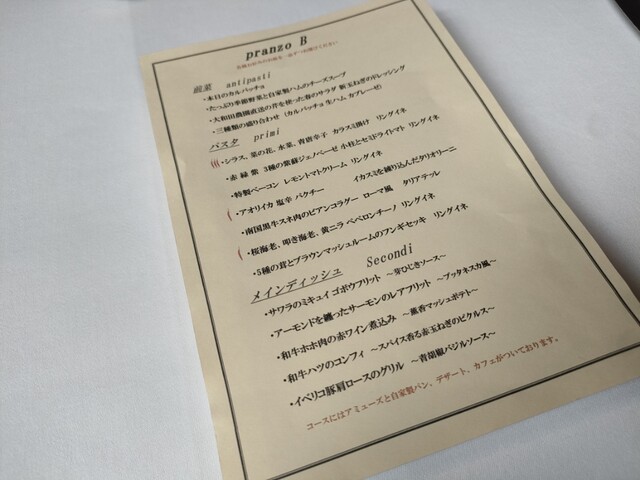 pranzo B
前菜 antipasti
・本日のカルパッチョ
・たっぷり季節野菜と自家製ハムのチーズスープ
・大和田農園直送の芹を使った春のサラダ 新玉ねぎのドレッシング
・三種類の盛り合わせ (カルパッチョ 生ハム カプレーゼ)
パスタ primi
・シラス、菜の花、水菜、青唐辛子 カラスミ掛け リングイネ
・赤 緑 紫 3種の紫蘇ジェノベーゼ 小柱とセミドライトマト リングイネ
・特製ベーコン レモントマトクリーム リングイネ
・アオリイカ 塩辛 パクチー イカスミを練り込んだタリオリーニ
・南国黒牛スネ肉のビアンコラグー ローマ風 タリアテッレ
・桜海老、叩き海老、黄ニラ ペペロンチーノ リングイネ
・5種の茸とブラウンマッシュルームのフンギセッキ リングイネ
メインディッシュ Secondi
・サワラのミキュイ ゴボウフリット ～芽ひじきソース～
・アーモンドを纏ったサーモンのレアフリット ～プッタネスカ風～
・和牛ホホ肉の赤ワイン煮込み ～燻香マッシュポテト～
・和牛ハツのコンフィ ～スパイス香る赤玉ねぎのピクルス～
・イベリコ豚肩ロースのグリル ～青胡椒バジルソース～
コースにはアミューズと自家製パン、デザート、カフェがついております。